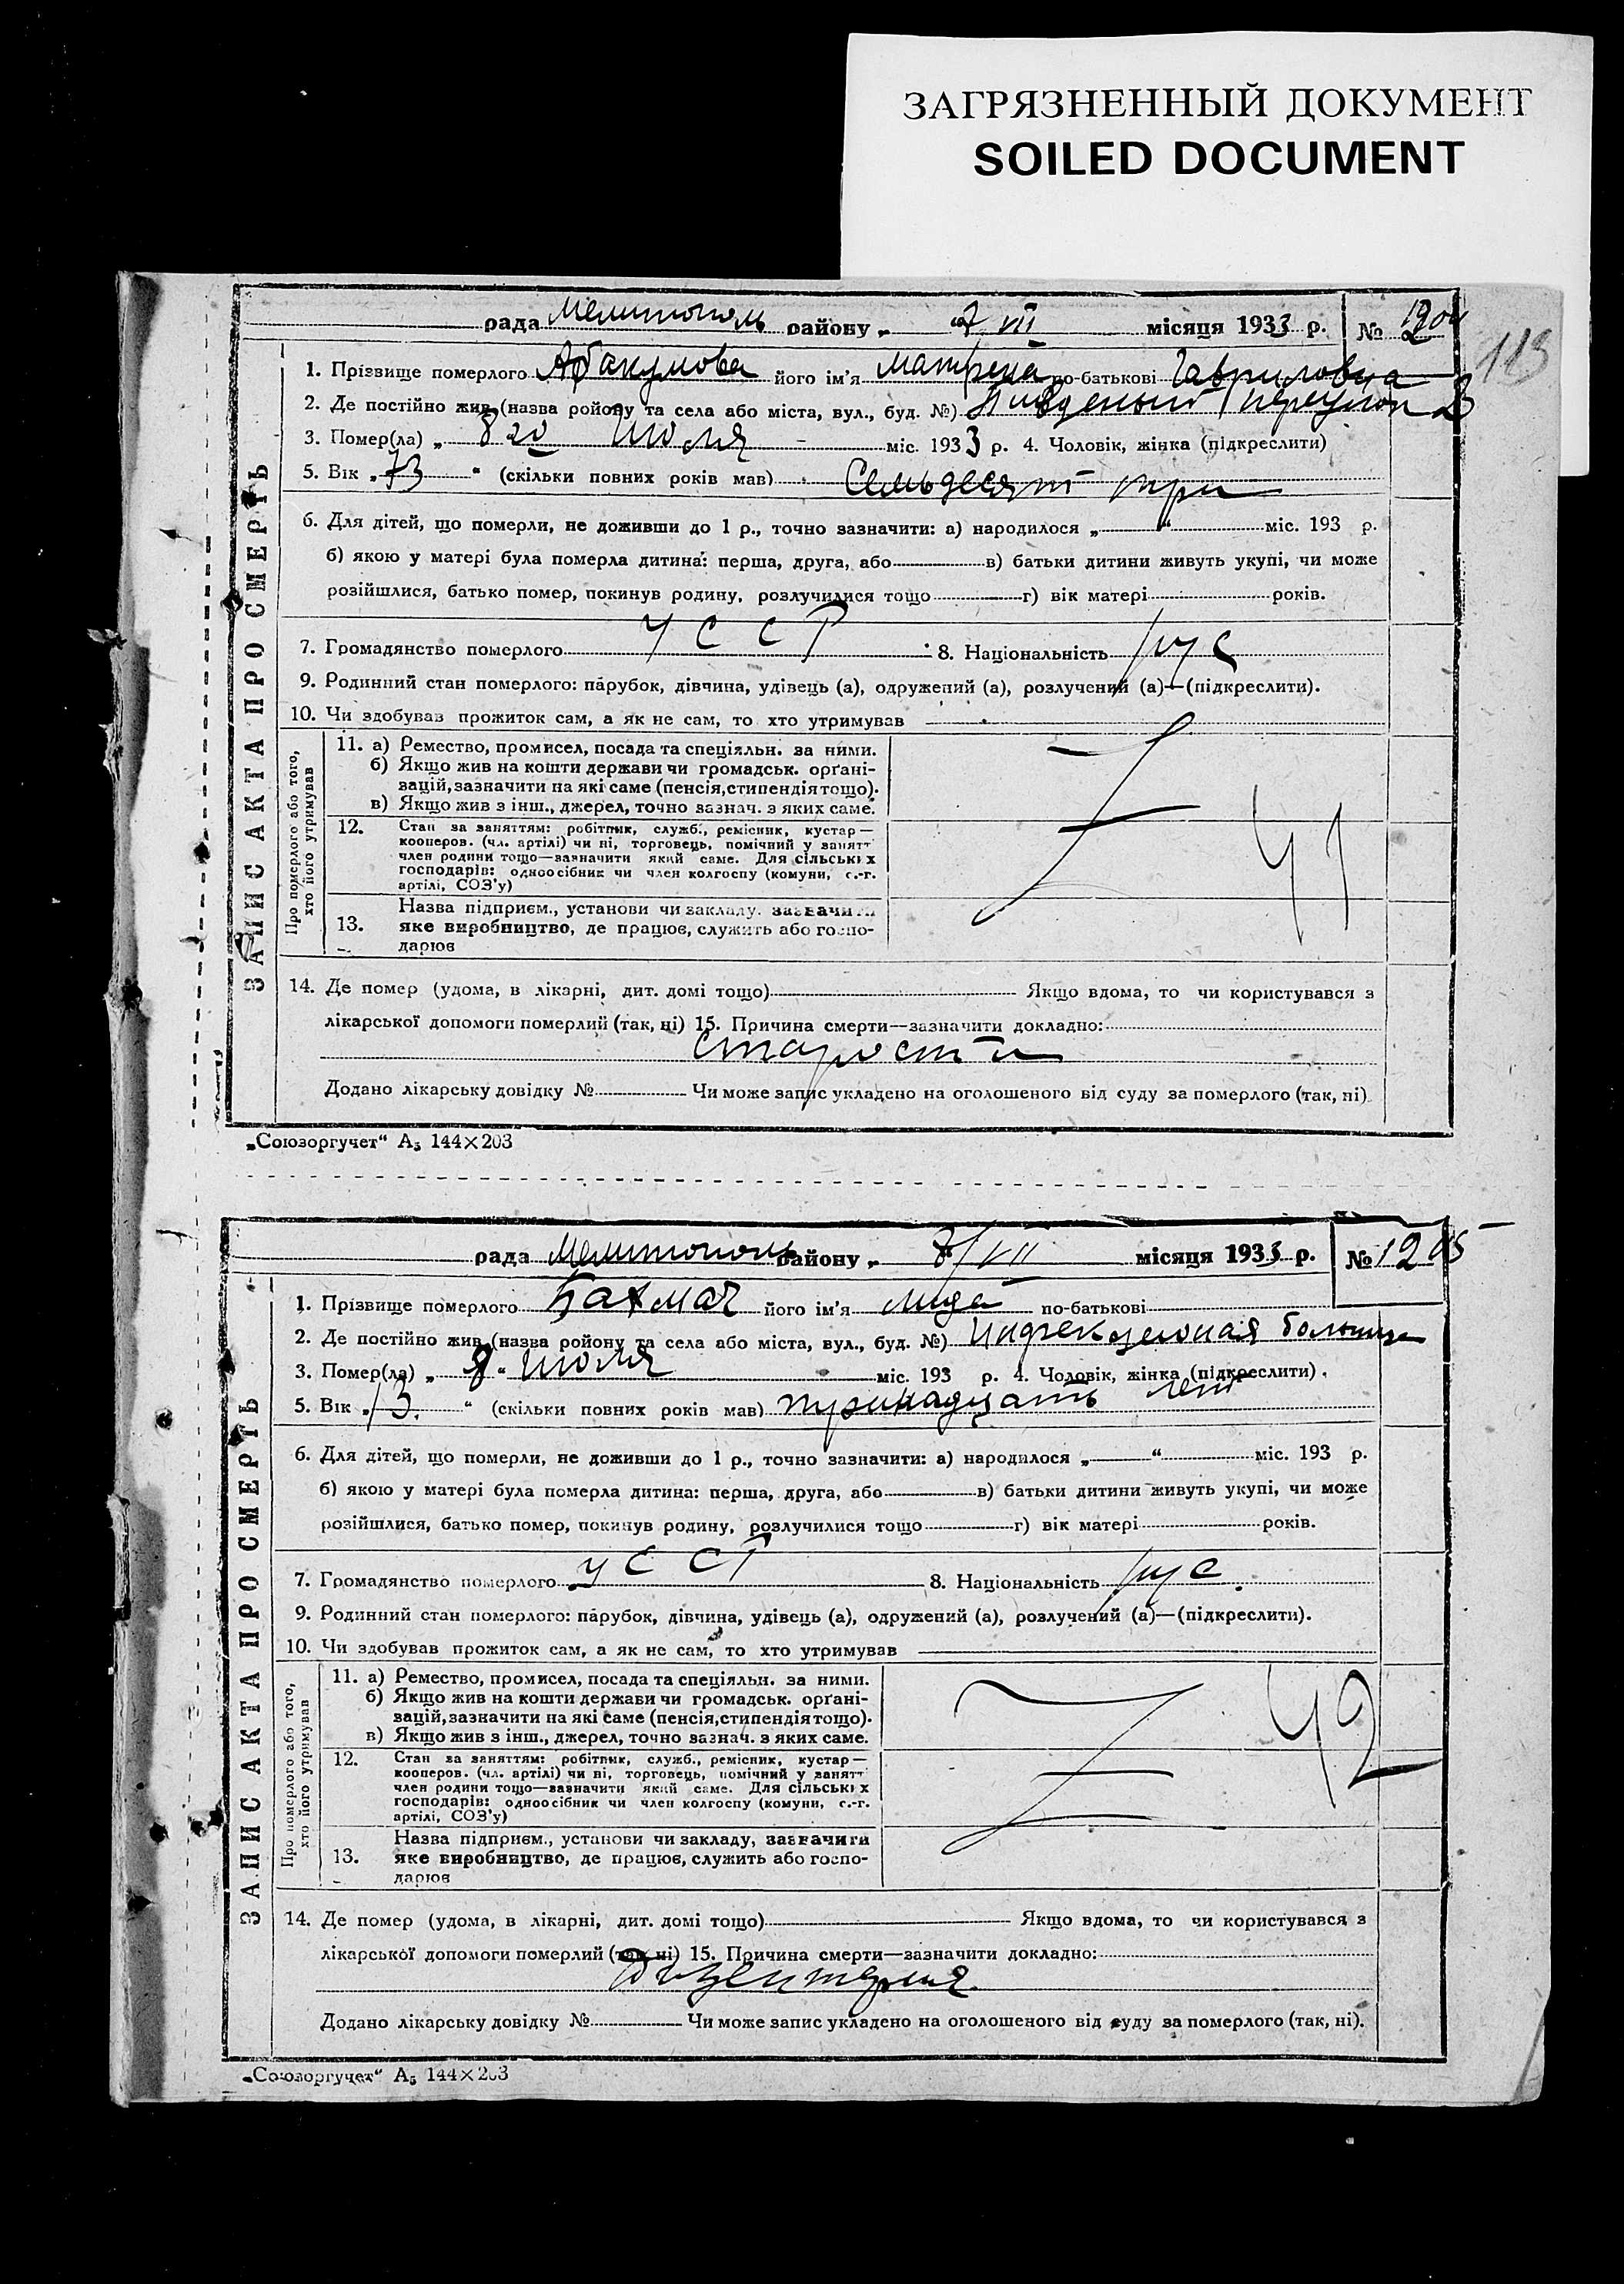 ЗАГРЯЗНЕННЫЙ ДОКУМЕНТ
SOILED DOCUMENT
рада Мелитополь району „ 7 VII місяця 1933 р. № 1204
113
ЗАПИС АКТА ПРО СМЕРТЬ
1. Прізвище померлого Абакумова його ім'я Матрена по-батькові Гавриловна
2. Де постійно жив (назва ройону та села або міста, вул., буд. №) переулок
3. Помер(ла) „ 8 го Июля міс. 1933 р. 4. Чоловік, жінка (підкреслити)
5. Вік „ 73 “ (скільки повних років мав) Семьдесят три
6. Для дітей, що померли, не доживши до 1 р., точно зазначити: а) народилося „ “ міс. 193 р.
б) якою у матері була померла дитина: перша, друга, або в) батьки дитини живуть укупі, чи може
розійшлися, батько помер, покинув родину, розлучилися тощо г) вік матері років.
7. Громадянство померлого УССР 8. Національність рус
9. Родинний стан померлого: парубок, дівчина, удівець (а), одружений (а), розлучений (а)—(підкреслити).
10. Чи здобував прожиток сам, а як не сам, то хто утримував
Про померлого або того, хто його утримував
11. а) Ремество, промисел, посада та спеціяльн. за ними.
б) Якщо жив на кошти держави чи громадськ. орґані-
зацій, зазначити на які саме (пенсія, стипендія тощо).
в) Якщо жив з інш., джерел, точно зазнач. з яких саме.
12. Стан за заняттям: робітник, служб., ремісник, кустар—
кооперов. (чл. артілі) чи ні, торговець, помічний у занятт
член родини тощо—зазначити який саме. Для сільських
господарів: одноосібник чи член колгоспу (комуни, с.-г.
артілі, СОЗ'у)
41
13. Назва підприєм., установи чи закладу, зазначити
яке виробництво, де працює, служить або госпо-
дарює
14. Де помер (удома, в лікарні, дит. домі тощо) Якщо вдома, то чи користувався з
лікарської допомоги померлий (так, ні) 15. Причина смерти—зазначити докладно:
старости
Додано лікарську довідку № Чи може запис укладено на оголошеного від суду за померлого (так, ні)
„Союзоргучет“ А5 144×203
рада Мелитополь району „ 7/VII місяця 1933 р. № 1205
ЗАПИС АКТА ПРО СМЕРТЬ
1. Прізвище померлого Бахмач його ім'я Лида по-батькові
2. Де постійно жив (назва ройону та села або міста, вул., буд. №) больница
3. Помер(ла) „ 8 “ Июля міс. 193 р. 4. Чоловік, жінка (підкреслити).
5. Вік „ 13. “ (скільки повних років мав) тринадцать лет
6. Для дітей, що померли, не доживши до 1 р., точно зазначити: а) народилося „ “ міс. 193 р.
б) якою у матері була померла дитина: перша, друга, або в) батьки дитини живуть укупі, чи може
розійшлися, батько помер, покинув родину, розлучилися тощо г) вік матері років.
7. Громадянство померлого УССР 8. Національність рус.
9. Родинний стан померлого: парубок, дівчина, удівець (а), одружений (а), розлучений (а)—(підкреслити).
10. Чи здобував прожиток сам, а як не сам, то хто утримував
Про померлого або того, хто його утримував
11. а) Ремество, промисел, посада та спеціяльн. за ними.
б) Якщо жив на кошти держави чи громадськ. орґані-
зацій, зазначити на які саме (пенсія, стипендія тощо).
в) Якщо жив з інш., джерел, точно зазнач. з яких саме.
42
12. Стан за заняттям: робітник, служб., ремісник, кустар—
кооперов. (чл. артілі) чи ні, торговець, помічний у занятт
член родини тощо—зазначити який саме. Для сільських
господарів: одноосібник чи член колгоспу (комуни, с.-г.
артілі, СОЗ'у)
13. Назва підприєм., установи чи закладу, зазначити
яке виробництво, де працює, служить або госпо-
дарює
14. Де помер (удома, в лікарні, дит. домі тощо) Якщо вдома, то чи користувався з
лікарської допомоги померлий (так, ні) 15. Причина смерти—зазначити докладно:
Дизентерия
Додано лікарську довідку № Чи може запис укладено на оголошеного від суду за померлого (так, ні).
„Союзоргучет“ А5 144×203